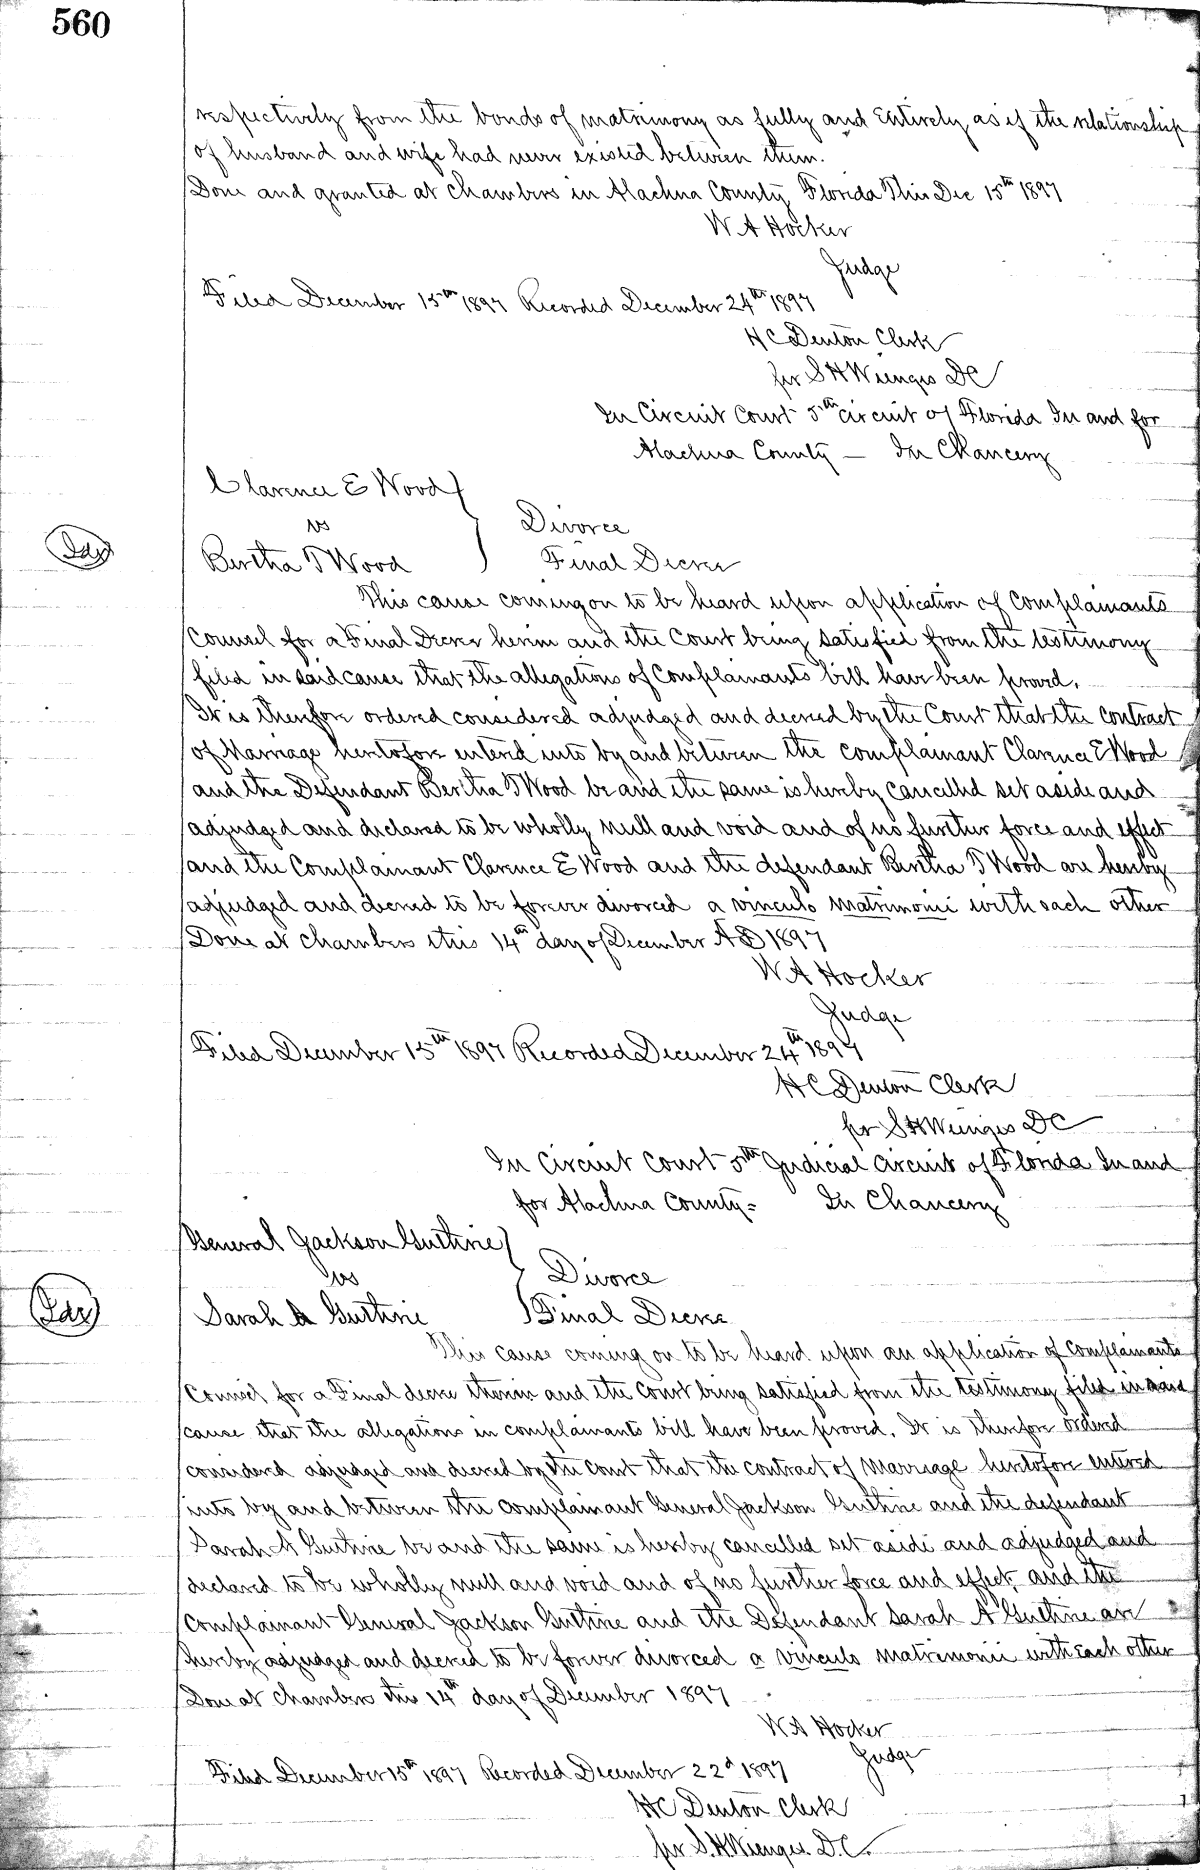 560
respectively from the bonds of matrimony as fully and Entirely as if the relationship
of husband and wife had never existed between them.
Done and granted at Chambers in Alachua County Florida This Dec 15th 1897
W A Hocker
Judge
Filed December 15th 1897 Recorded December 24th 1897
H C Denton Clerk
per S H Wienges DC
In Circuit Court 5th Circuit of Florida In and for
Alachua County — In Chancery
Clarence E Wood
vs
Divorce
Idx
Bertha T Wood
Final Decree
This cause coming on to be heard upon application of Complainants
Counsel for a Final Decree herein and the Court being satisfied from the testimony
filed in said cause that the allegations of Complainants bill have been proved.
It is therefore ordered considered adjudged and decreed by the Court that the contract
of Marriage heretofore entered into by and between the complainant Clarence E Wood
and the Defendant Bertha T Wood be and the same is hereby cancelled set aside and
adjudged and declared to be wholly null and void and of no further force and effect
and the Complainant Clarence E Wood and the defendant Bertha T Wood are hereby
adjudged and decreed to be forever divorced a vinculo matrimonii with each other
Done at Chambers this 14th day of December AD 1897
W A Hocker
Judge
Filed December 15th 1897 Recorded December 24th 1897
H C Denton Clerk
per S H Wienges DC
In Circuit Court 5th Judicial Circuit of Florida In and
for Alachua County = In Chancery
General Jackson Guthrie
vs
Divorce
Idx
Sarah A Guthrie
Final Decree
This cause coming on to be heard upon an application of Complainants
Counsel for a Final decree therein and the Court being satisfied from the testimony filed in said
cause that the allegations in complainants bill have been proved. It is therefore ordered
considered adjudged and decreed by the Court that the contract of Marriage heretofore entered
into by and between the Complainant General Jackson Guthrie and the defendant
Sarah A Guthrie be and the same is hereby cancelled set aside and adjudged and
declared to be wholly null and void and of no further force and effect, and the
Complainant General Jackson Guthrie and the Defendant Sarah A Guthrie are
hereby adjudged and decreed to be forever divorced a vinculo matrimonii with each other
Done at Chambers this 14th day of December 1897
W A Hocker
Judge
Filed December 15th 1897 Recorded December 22d 1897
H C Denton Clerk
per S. H. Wienges. D. C.